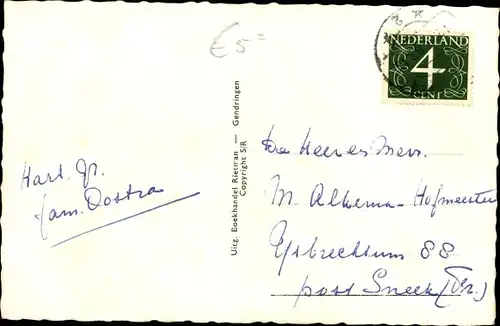 € 5=
NEDERLAND
4
CENT
Hart. Gr.
fam. Oostra
Uitg. Boekhandel Rietman — Gendringen
Copyright S/R
Heer en Mevr.
M. Alkema-Hofmeester
Ysbrechtum 88
post Sneek (Fr.)